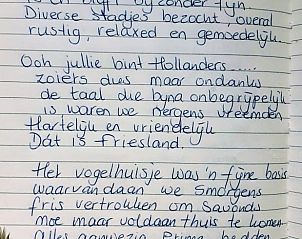 bijzonder fijn.
Diverse stadjes bezocht, overal
rustig, relaxed en gemoedelijk.
Ooh jullie bint Hollanders.....
zoiets dus maar ondanks
de taal die byna onbegrijpelijk
is waren we nergens vreemden
Hartelijk en vriendelijk
Dát is Friesland.
Het vogelhuisje was 'n fijne basis
waarvandaan we smorgens
fris vertrokken om savonds
moe maar voldaan thuis te komen
Alles aanwezig. Prima bedden